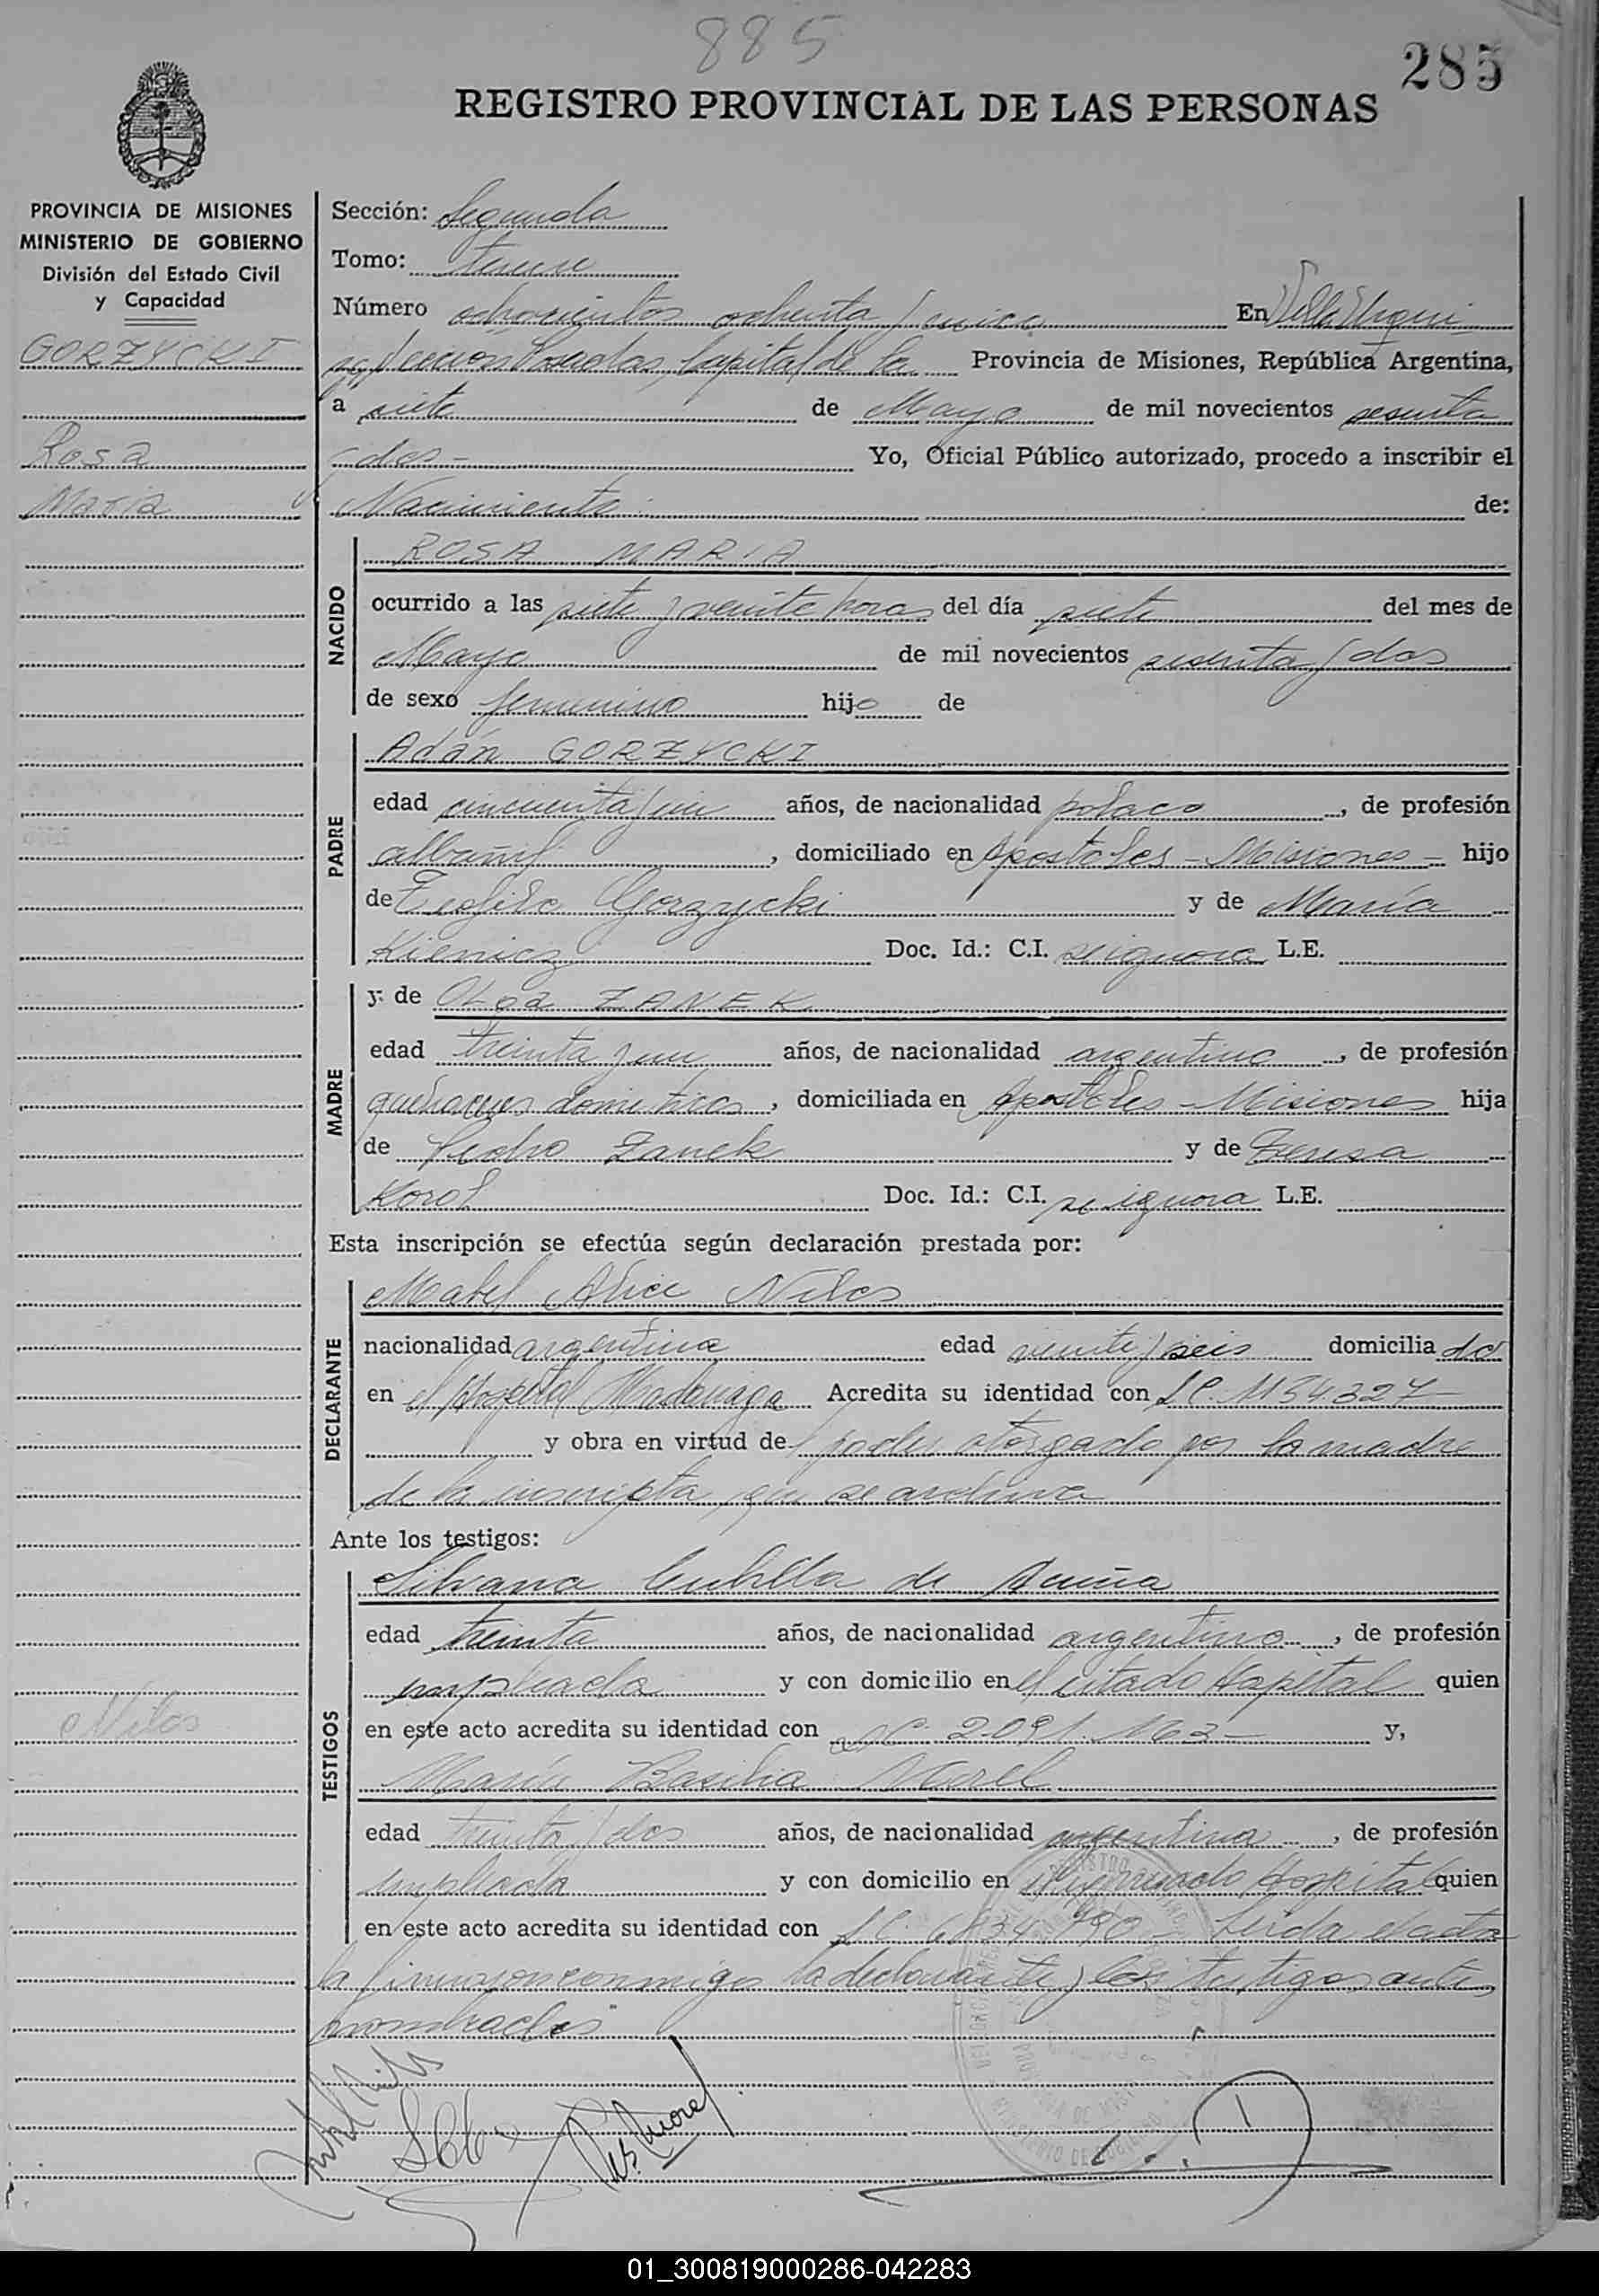 885
285
REGISTRO PROVINCIAL DE LAS PERSONAS
PROVINCIA DE MISIONES
MINISTERIO DE GOBIERNO
División del Estado Civil
y Capacidad
GORZYCKI
Rosa
Maria
Sección: Segunda
Tomo:
Número ochocientos ochenta y cinco En Villa Urquiza
sección Posadas, Capital de la Provincia de Misiones, República Argentina,
a siete de Mayo de mil novecientos sesenta
y dos - Yo, Oficial Público autorizado, procedo a inscribir el
Nacimiento de:
NACIDO
ROSA MARIA
ocurrido a las siete y veinte horas del día siete del mes de
Mayo de mil novecientos sesenta y dos
de sexo femenino hijo de
PADRE
Adán GORZYCKI
edad cincuenta y un años, de nacionalidad polaco, de profesión
albañil, domiciliado en Apostoles - Misiones - hijo
de Teofilo Gorzycki y de María
Kienicz Doc. Id.: C.I. se ignora L.E.
MADRE
y de Olga ZANEK
edad treinta y un años, de nacionalidad argentina, de profesión
quehaceres domesticos, domiciliada en Apostoles - Misiones hija
de Pedro Zanek y de Teresa
Korol Doc. Id.: C.I. se ignora L.E.
Esta inscripción se efectúa según declaración prestada por:
DECLARANTE
Mabel Alice Nilos
nacionalidad argentina edad veinte y seis domicilia da
en el Hospital Madariaga Acredita su identidad con L.C. 1154.327
y obra en virtud de poder otorgado por la madre
de la inscripta, que se archiva
Ante los testigos:
TESTIGOS
Silvana Cubilla de Acuña
edad treinta años, de nacionalidad argentina, de profesión
empleada y con domicilio en el citado Hospital quien
en este acto acredita su identidad con Nº 2.091.163 - y,
María Basilia Morel
edad treinta y dos años, de nacionalidad argentina, de profesión
empleada y con domicilio en el expresado Hospital quien
en este acto acredita su identidad con L.C. 6.834.790 - Leída el acta
la firman conmigo la declarante y los testigos ante
nombrados
Nilos
01_300819000286-042283